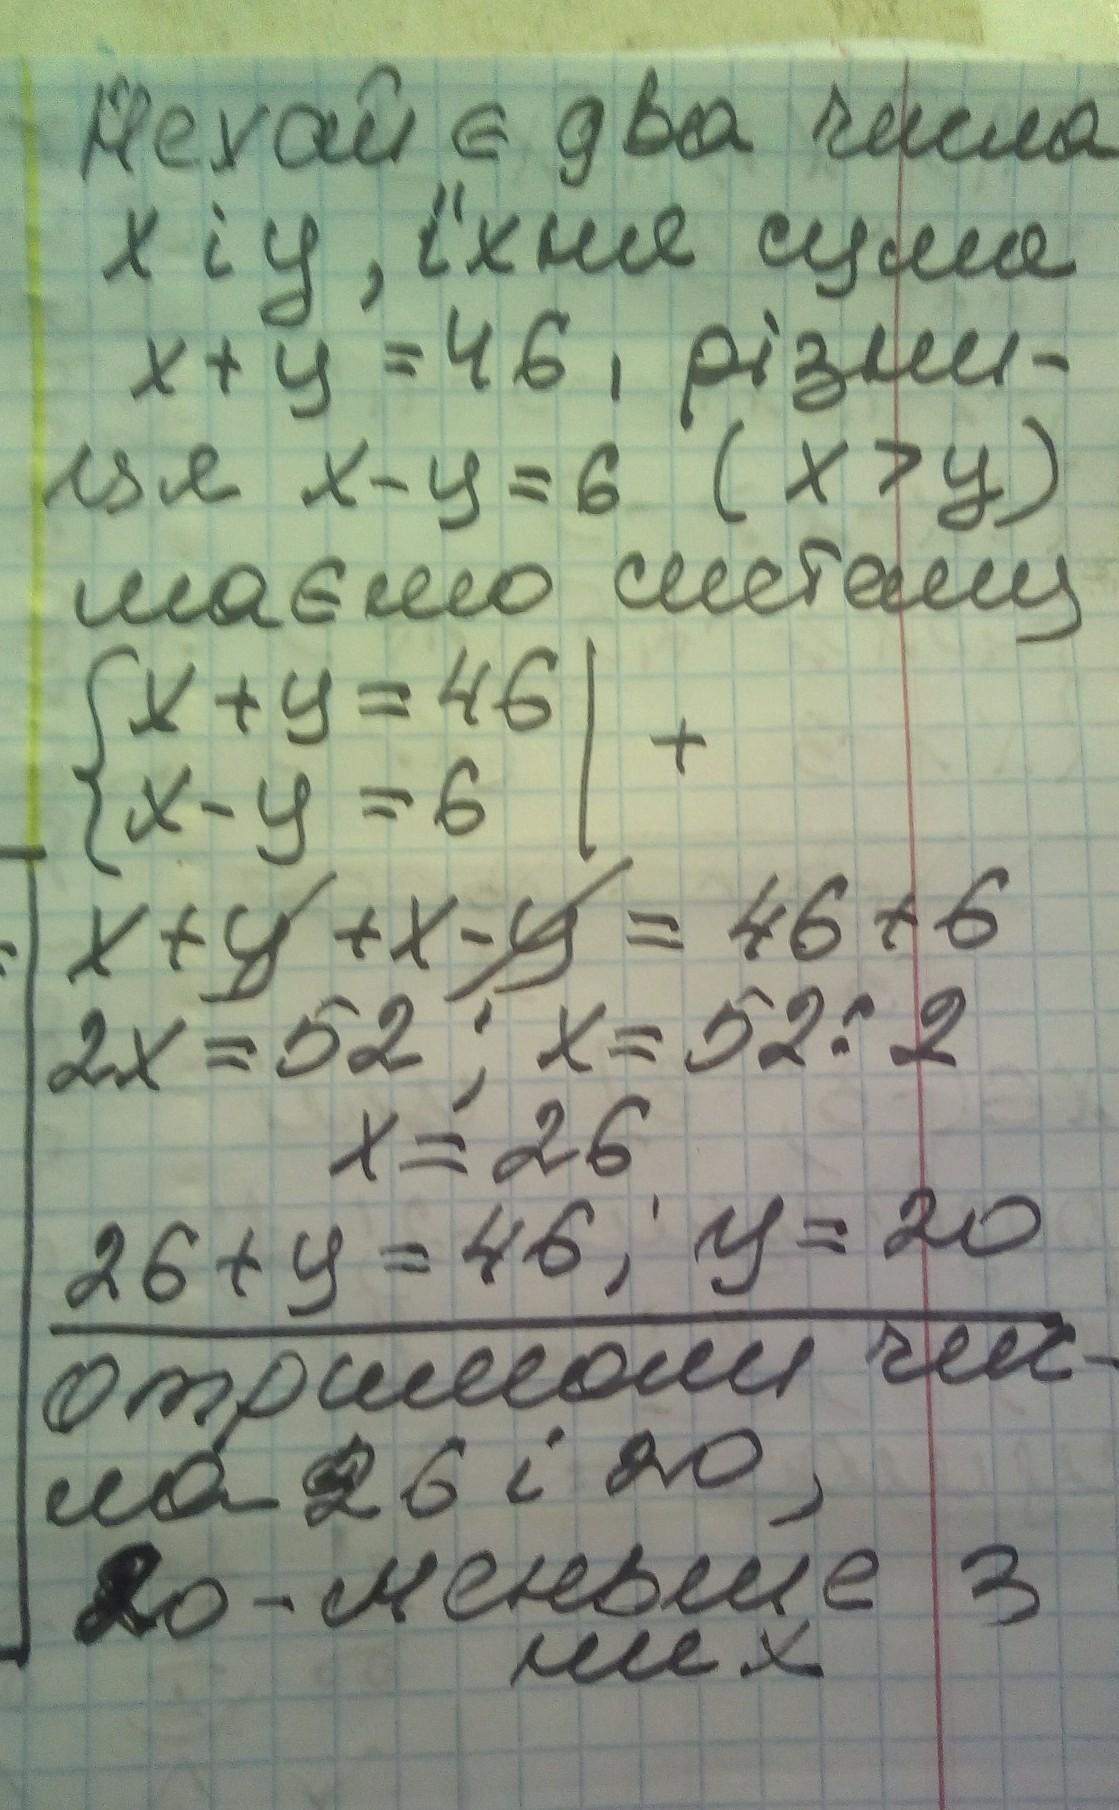 Нехай є два числа
х і у, їхня сума
х + у = 46, різни-
ця х - у = 6 (х > у)
маємо систему
{ х + у = 46 | +
{ х - у = 6 |
х + у + х - у = 46 + 6
2х = 52; х = 52 : 2
х = 26
26 + у = 46; у = 20
отримали чис-
ла 26 і 20,
20 - меньше з
них